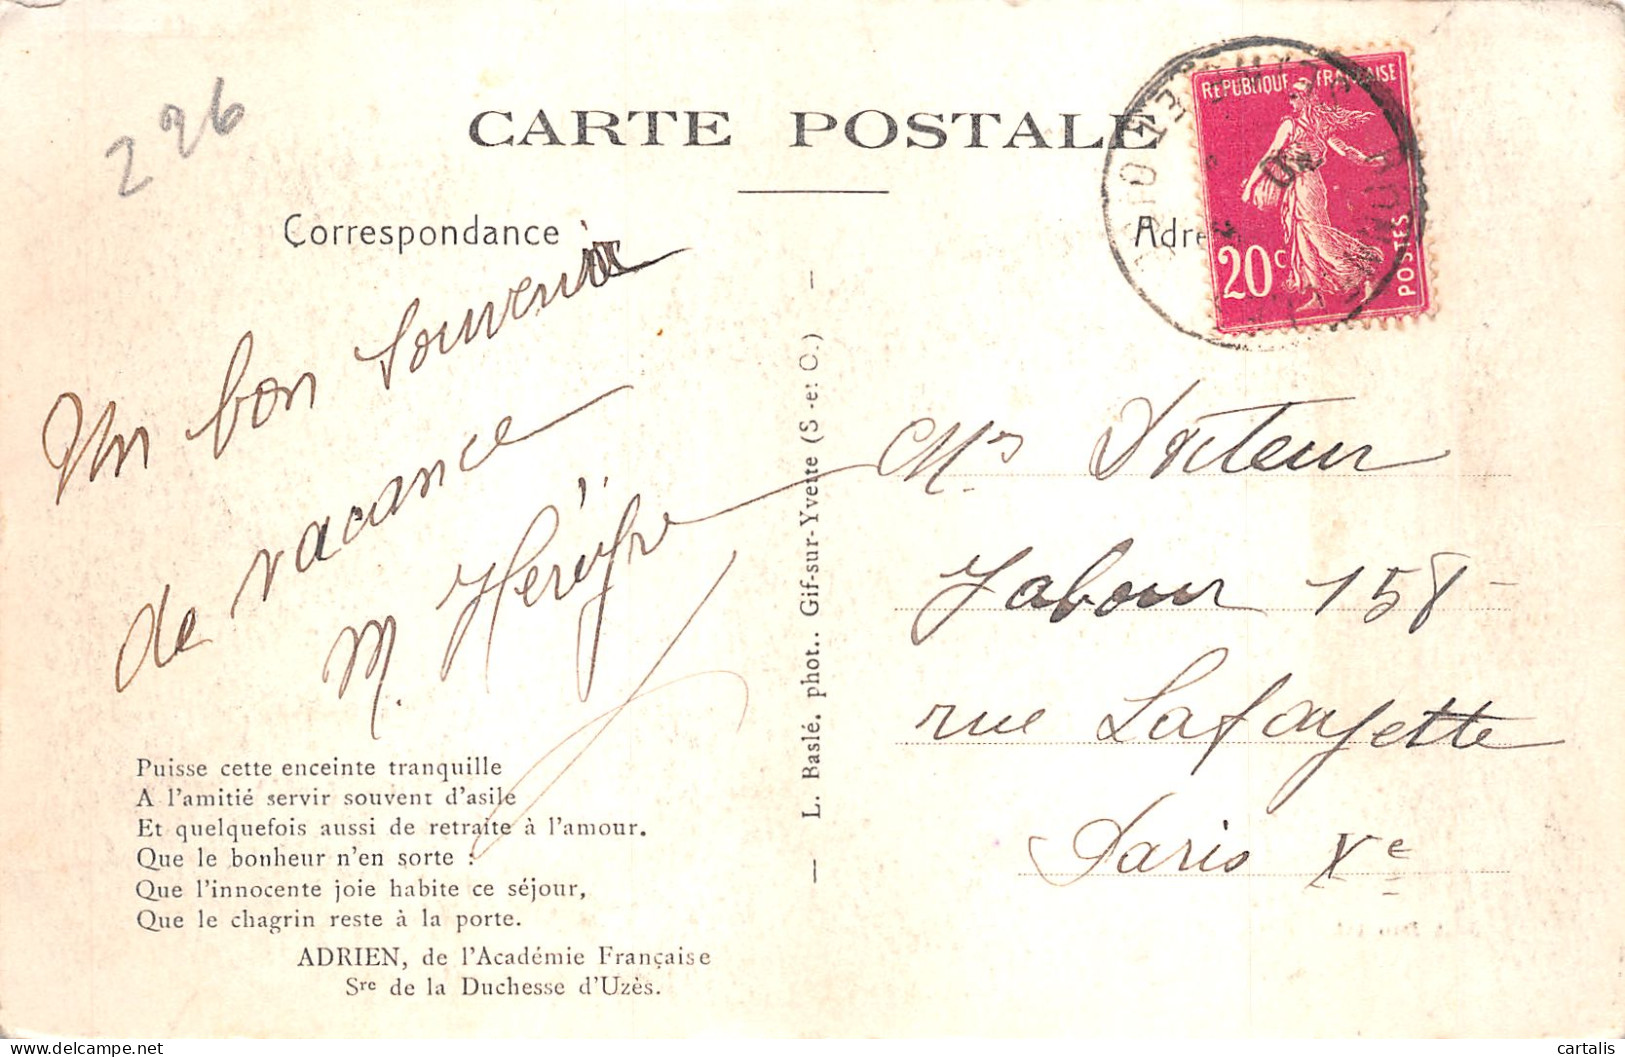 226
CARTE POSTALE
Correspondance
Adre
REPUBLIQUE FRANÇAISE
20c
POSTES
Un bon souvenir
de vacance
M.
Mr Docteur
Jabour 158
rue Lafayette
Paris Xe
L. Baslé, phot.. Gif-sur-Yvette (S.-et O.)
Puisse cette enceinte tranquille
A l'amitié servir souvent d'asile
Et quelquefois aussi de retraite à l'amour.
Que le bonheur n'en sorte :
Que l'innocente joie habite ce séjour,
Que le chagrin reste à la porte.
ADRIEN, de l'Académie Française
Sre de la Duchesse d'Uzès.
delcampe.net
cartalis